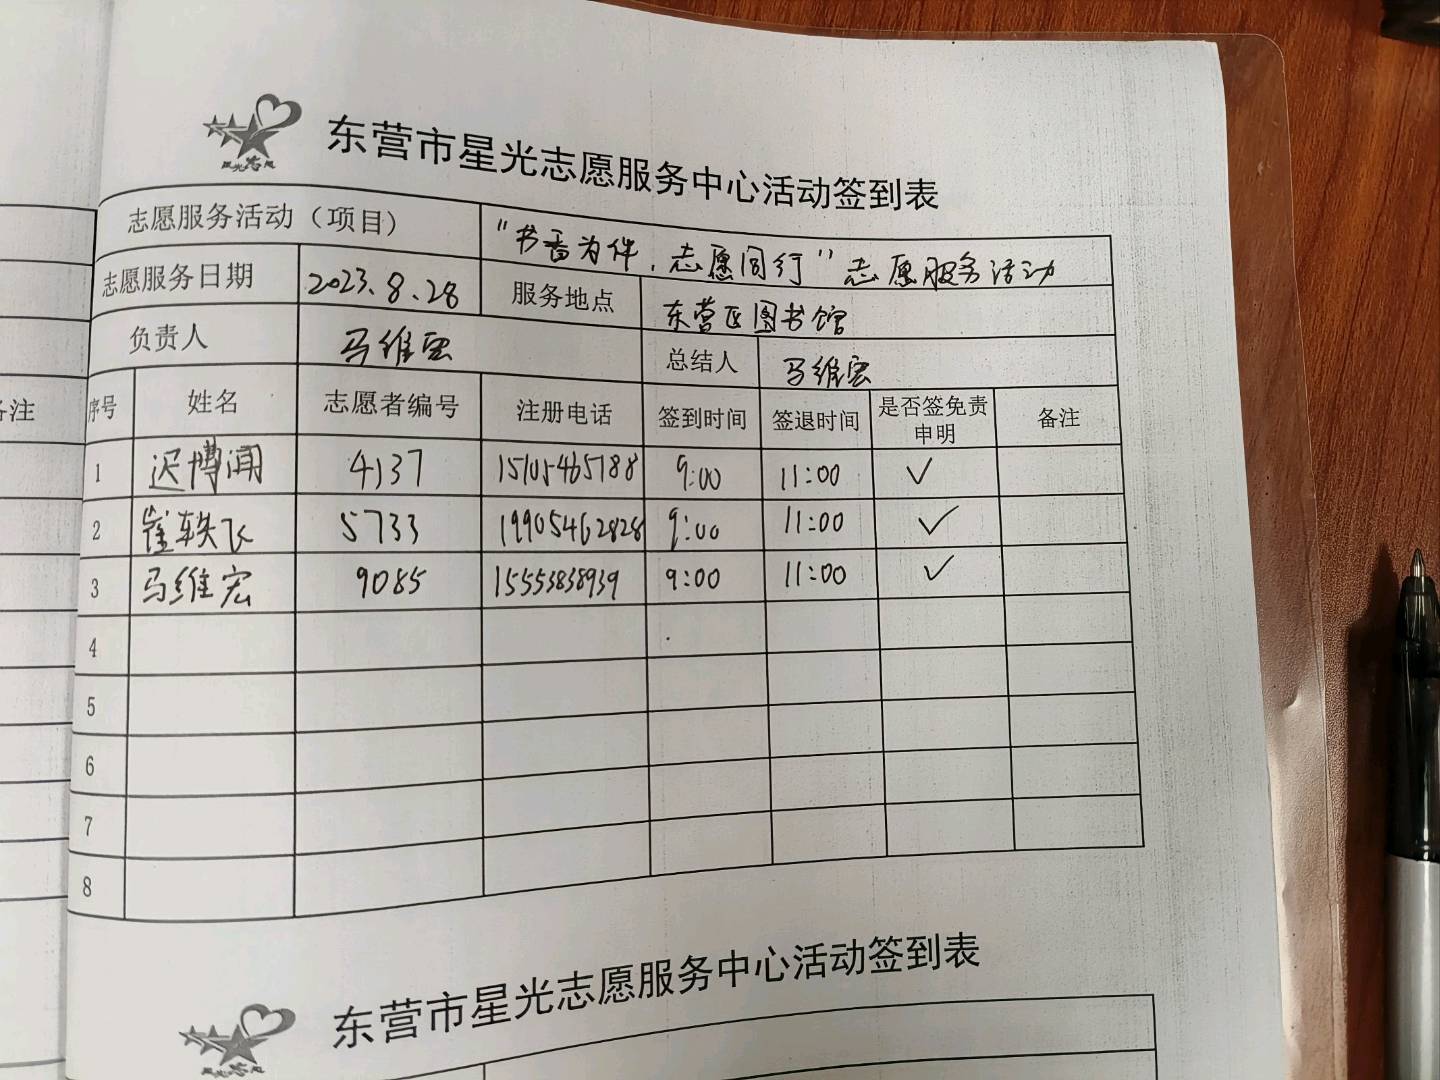 东营市星光志愿服务中心活动签到表
星光志愿
志愿服务活动（项目） “书香为伴，志愿同行”志愿服务活动
志愿服务日期 2023.8.28 服务地点 东营区图书馆
负责人 马维宏 总结人 马维宏
序号 姓名 志愿者编号 注册电话 签到时间 签退时间 是否签免责申明 备注
1 迟博闻 4137 15105465788 9:00 11:00 ✓
2 崔轶飞 5733 19905462828 9:00 11:00 ✓
3 马维宏 9085 15553838939 9:00 11:00 ✓
4
5
6
7
8
备注
东营市星光志愿服务中心活动签到表
星光志愿